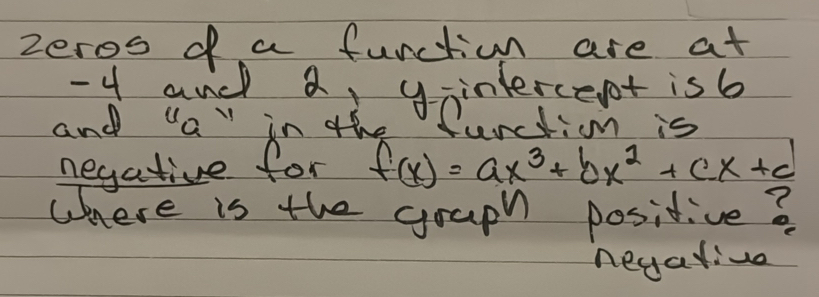 zeros of a function are at
-4 and 2, y-intercept is 6
and "a" in the function is
negative for f(x) = ax³ + bx² + cx + d
Where is the graph positive?
negative